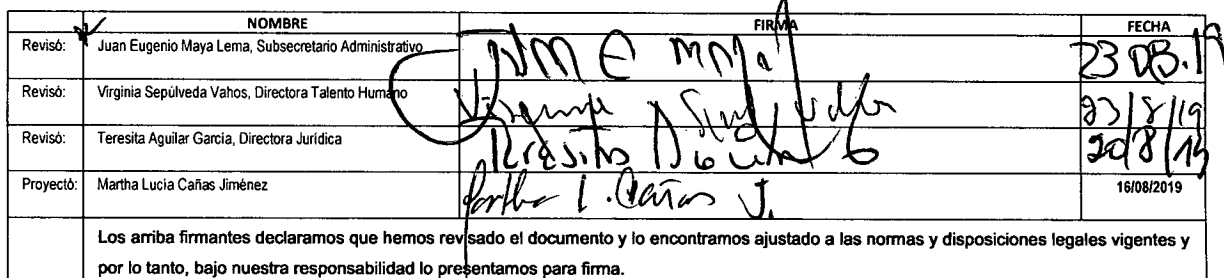 NOMBRE FIRMA FECHA
Revisó: Juan Eugenio Maya Lema, Subsecretario Administrativo 23 08.19
Revisó: Virginia Sepúlveda Vahos, Directora Talento Humano 23/8/19
Revisó: Teresita Aguilar García, Directora Jurídica Teresita Aguilar G 20/8/19
Proyectó: Martha Lucía Cañas Jiménez Martha L. Cañas J. 16/08/2019
Los arriba firmantes declaramos que hemos revisado el documento y lo encontramos ajustado a las normas y disposiciones legales vigentes y
por lo tanto, bajo nuestra responsabilidad lo presentamos para firma.